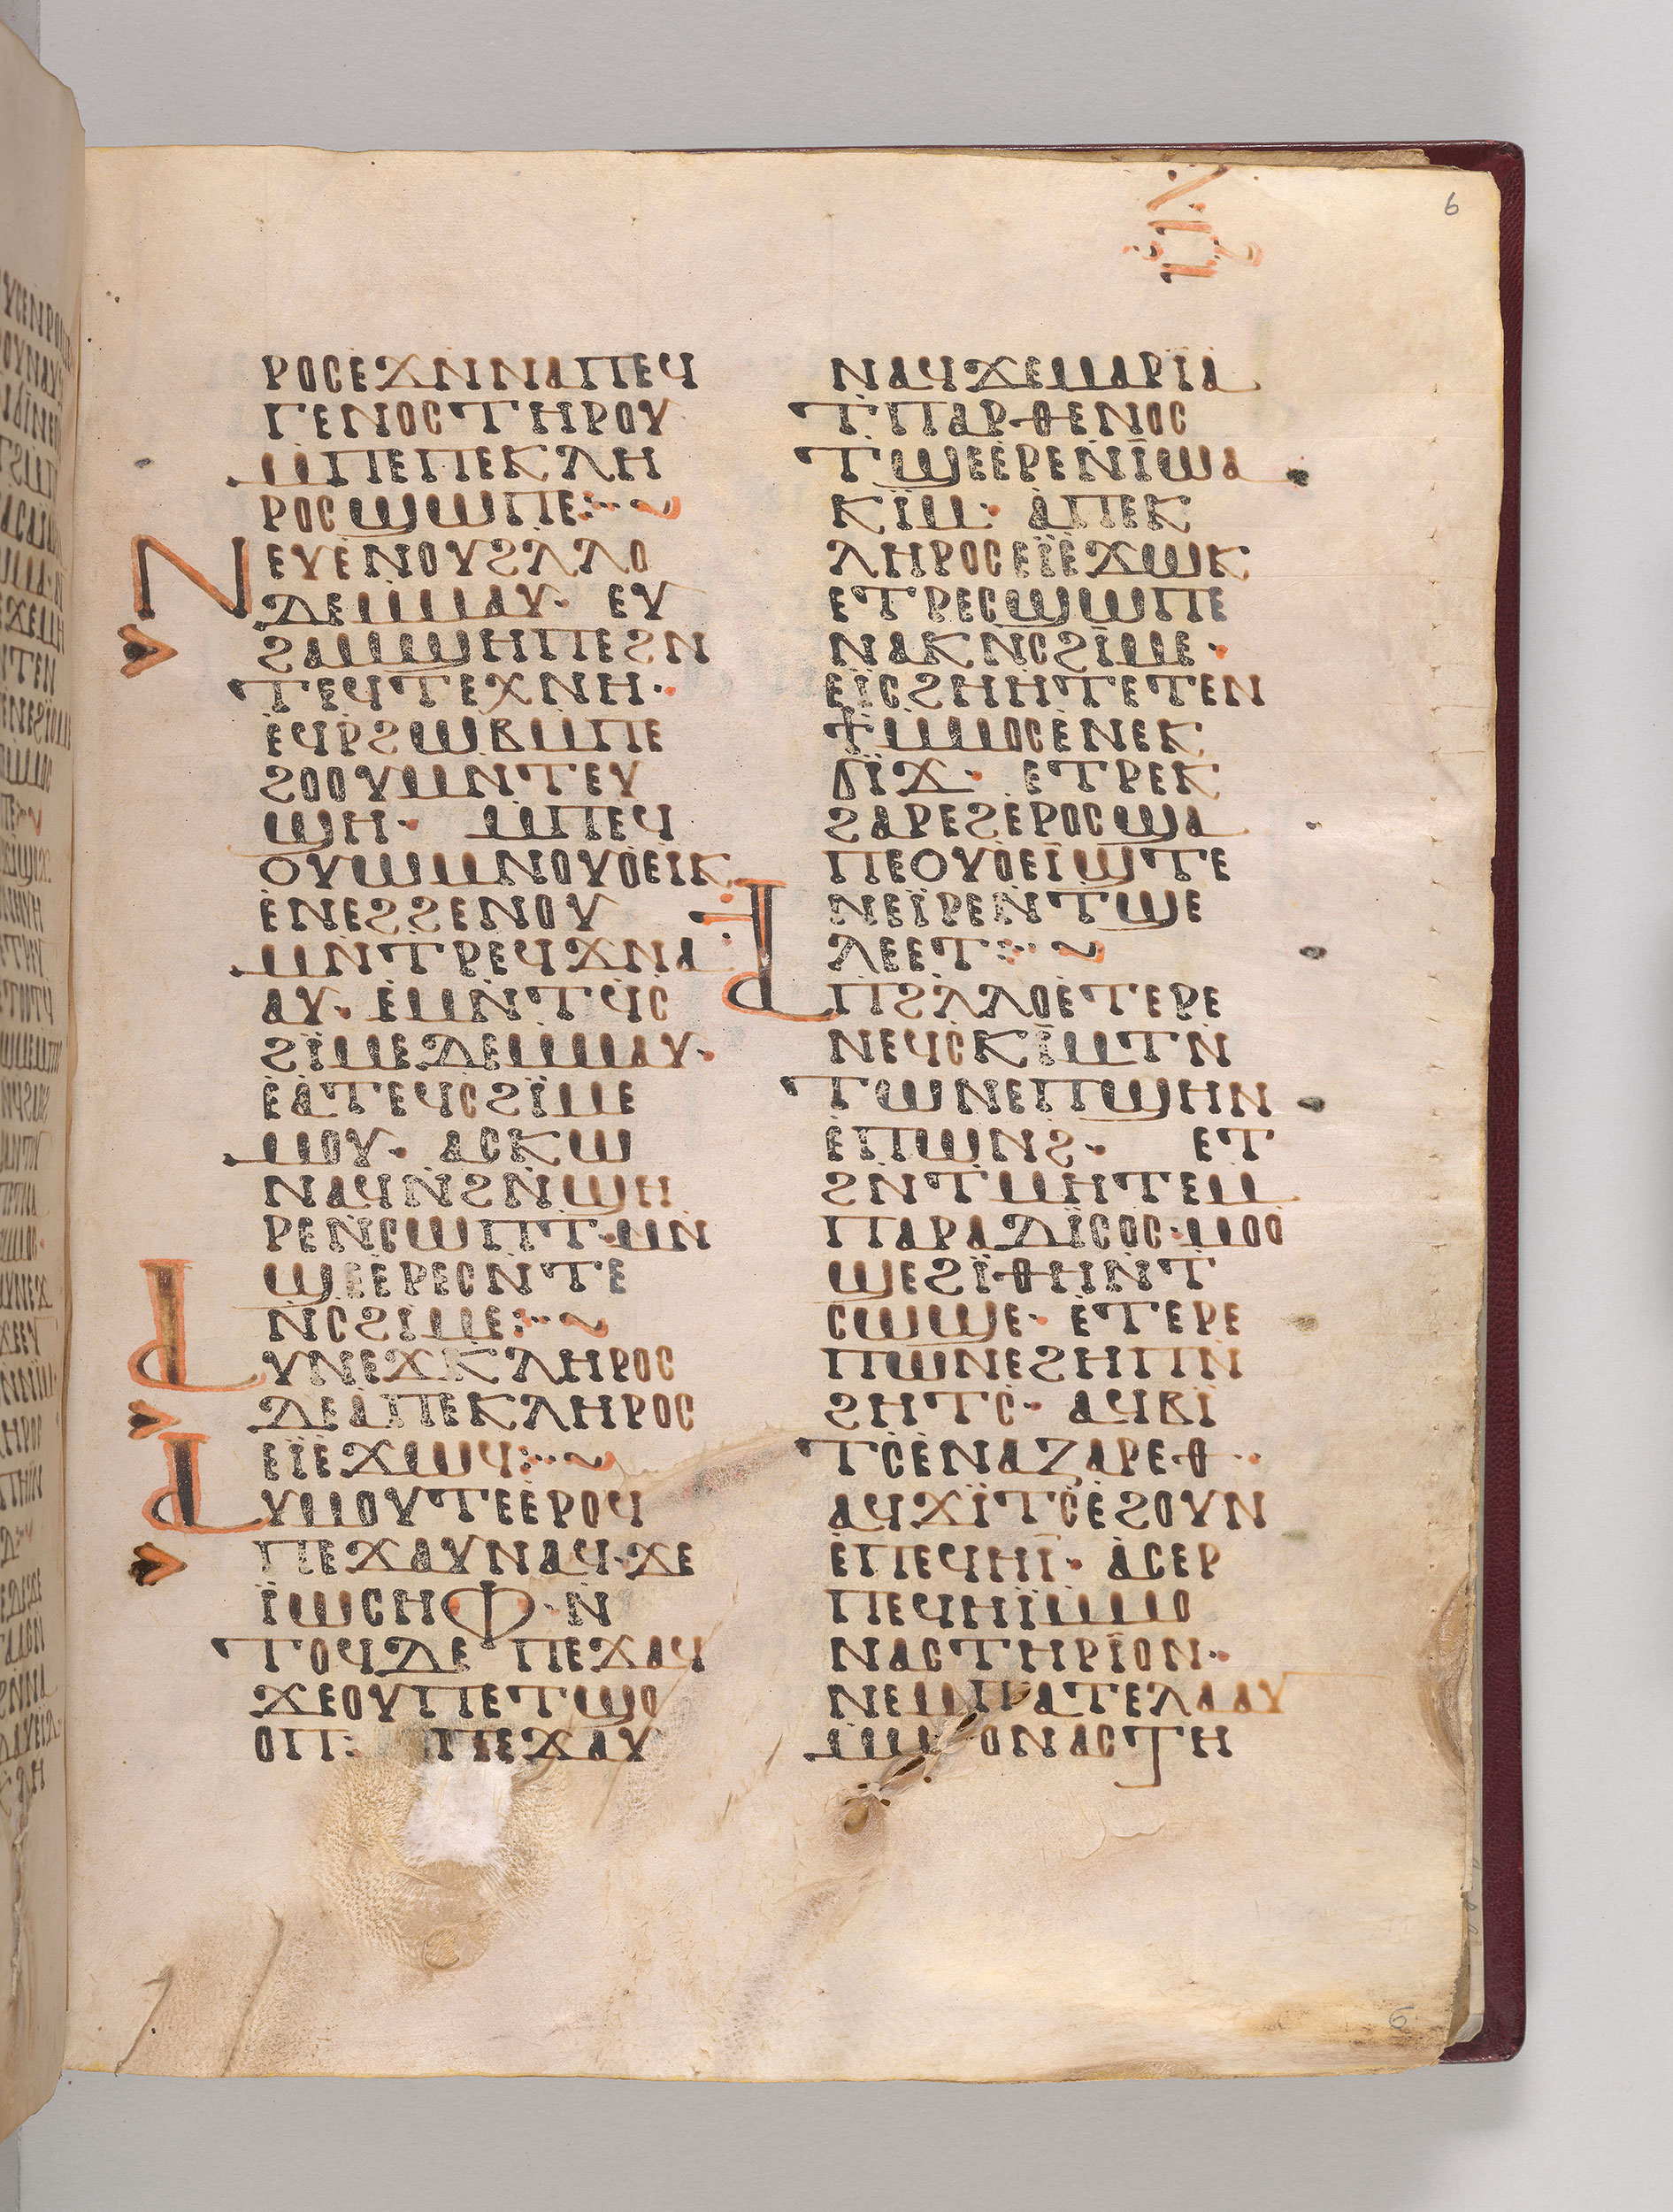 6
ⲣⲟⲥⲉϫⲛⲛⲁⲡⲉϥ
ⲅⲉⲛⲟⲥⲧⲏⲣⲟⲩ
ⲙⲡⲉⲡⲉⲕⲗⲏ
ⲣⲟⲥϣⲱⲡⲉ:·~
ⲛⲉⲩⲉⲛⲟⲩϩⲗⲗⲟ
ⲇⲉⲙⲙⲁⲩ· ⲉⲩ
ϩⲁⲙϣⲏⲡⲉϩⲛ
ⲧⲉϥⲧⲉⲭⲛⲏ·
ⲉϥⲣϩⲱⲃⲙⲡⲉ
ϩⲟⲟⲩⲙⲛⲧⲉⲩ
ϣⲏ· ⲙⲡⲉϥ
ⲟⲩⲱⲙⲛⲟⲩⲟⲉⲓⲕ
ⲉⲛⲉϩϩⲉⲛⲟⲩ
ⲙⲛⲧⲣⲉϥϫⲛⲁ
ⲁⲩ· ⲉⲙⲛⲧϥⲥ
ϩⲓⲙⲉⲇⲉⲙⲙⲁⲩ·
ⲉⲁⲧⲉϥⲥϩⲓ̈ⲙⲉ
ⲙⲟⲩ· ⲁⲥⲕⲱ
ⲛⲁϥⲛϩⲛϣⲏ
ⲣⲉⲛⲥⲱⲡⲧ·ⲙⲛ
ϣⲉⲉⲣⲉⲥⲛⲧⲉ
ⲛⲥϩⲓⲙⲉ:·~
ⲁⲩⲛⲉϫⲕⲗⲏⲣⲟⲥ
ⲇⲉⲁⲡⲉⲕⲗⲏⲣⲟⲥ
ⲉⲓ̈ⲉϫⲱϥ:·~
ⲁⲩⲙⲟⲩⲧⲉⲉⲣⲟϥ
ⲡⲉϫⲁⲩⲛⲁϥ·ϫⲉ
ⲓ̈ⲱⲥⲏⲫ·ⲛ
ⲧⲟϥⲇⲉ ⲡⲉϫⲁϥ
ϫⲉⲟⲩⲡⲉⲧϣⲟ
ⲟⲡ: ⲡⲉϫⲁⲩ
ⲛⲁϥϫⲉⲙⲁⲣⲓ̈ⲁ
ⲧⲡⲁⲣⲑⲉⲛⲟⲥ
ⲧϣⲉⲉⲣⲉⲛⲓ̈ⲱⲁ
ⲕⲓ̈ⲙ· ⲁⲡⲉⲕ
ⲗⲏⲣⲟⲥⲉⲓ̈ⲉϫⲱⲕ
ⲉⲧⲣⲉⲥϣⲱⲡⲉ
ⲛⲁⲕⲛⲥϩⲓⲙⲉ·
ⲉⲓ̈ⲥϩⲏⲏⲧⲉⲧⲉⲛ
ϯⲙⲙⲟⲥⲉⲛⲉⲕ
ϭⲓ̈ϫ· ⲉⲧⲣⲉⲕ
ϩⲁⲣⲉϩⲉⲣⲟⲥϣⲁ
ⲡⲉⲟⲩⲟⲉⲓ̈ϣⲧⲉ
ⲛⲉⲓ̈ⲣⲉⲛⲧϣⲉ
ⲗⲉⲉⲧ:·~
ⲁⲡϩⲗⲗⲟⲉⲧⲉⲣⲉ
ⲛⲉϥⲥⲕⲓ̈ⲙⲧⲛ
ⲧⲱⲛⲉⲡϣⲏⲛ
ⲉⲡⲱⲛϩ· ⲉⲧ
ϩⲛⲧⲙⲏⲧⲉⲙ
ⲡⲁⲣⲁⲇⲓ̈ⲥⲟⲥ·ⲙⲟⲟ
ϣⲉϩⲓ̈ⲑⲏⲛⲧ
ⲥⲱϣⲉ· ⲉⲧⲉⲣⲉ
ⲡⲱⲛⲉϩⲏⲡⲛ
ϩⲏⲧⲥ· ⲁϥⲃⲓ
ⲧⲥⲉⲛⲁⲍⲁⲣⲉⲑ·
ⲁϥϫⲓ̈ⲧⲥⲉϩⲟⲩⲛ
ⲉⲡⲉϥⲏⲓ̈· ⲁⲥⲉⲣ
ⲡⲉϥⲏⲓ̈ⲙⲙⲟ
ⲛⲁⲥⲧⲏⲣⲓ̈ⲟⲛ·
ⲟⲛⲁⲥⲧⲏ
6